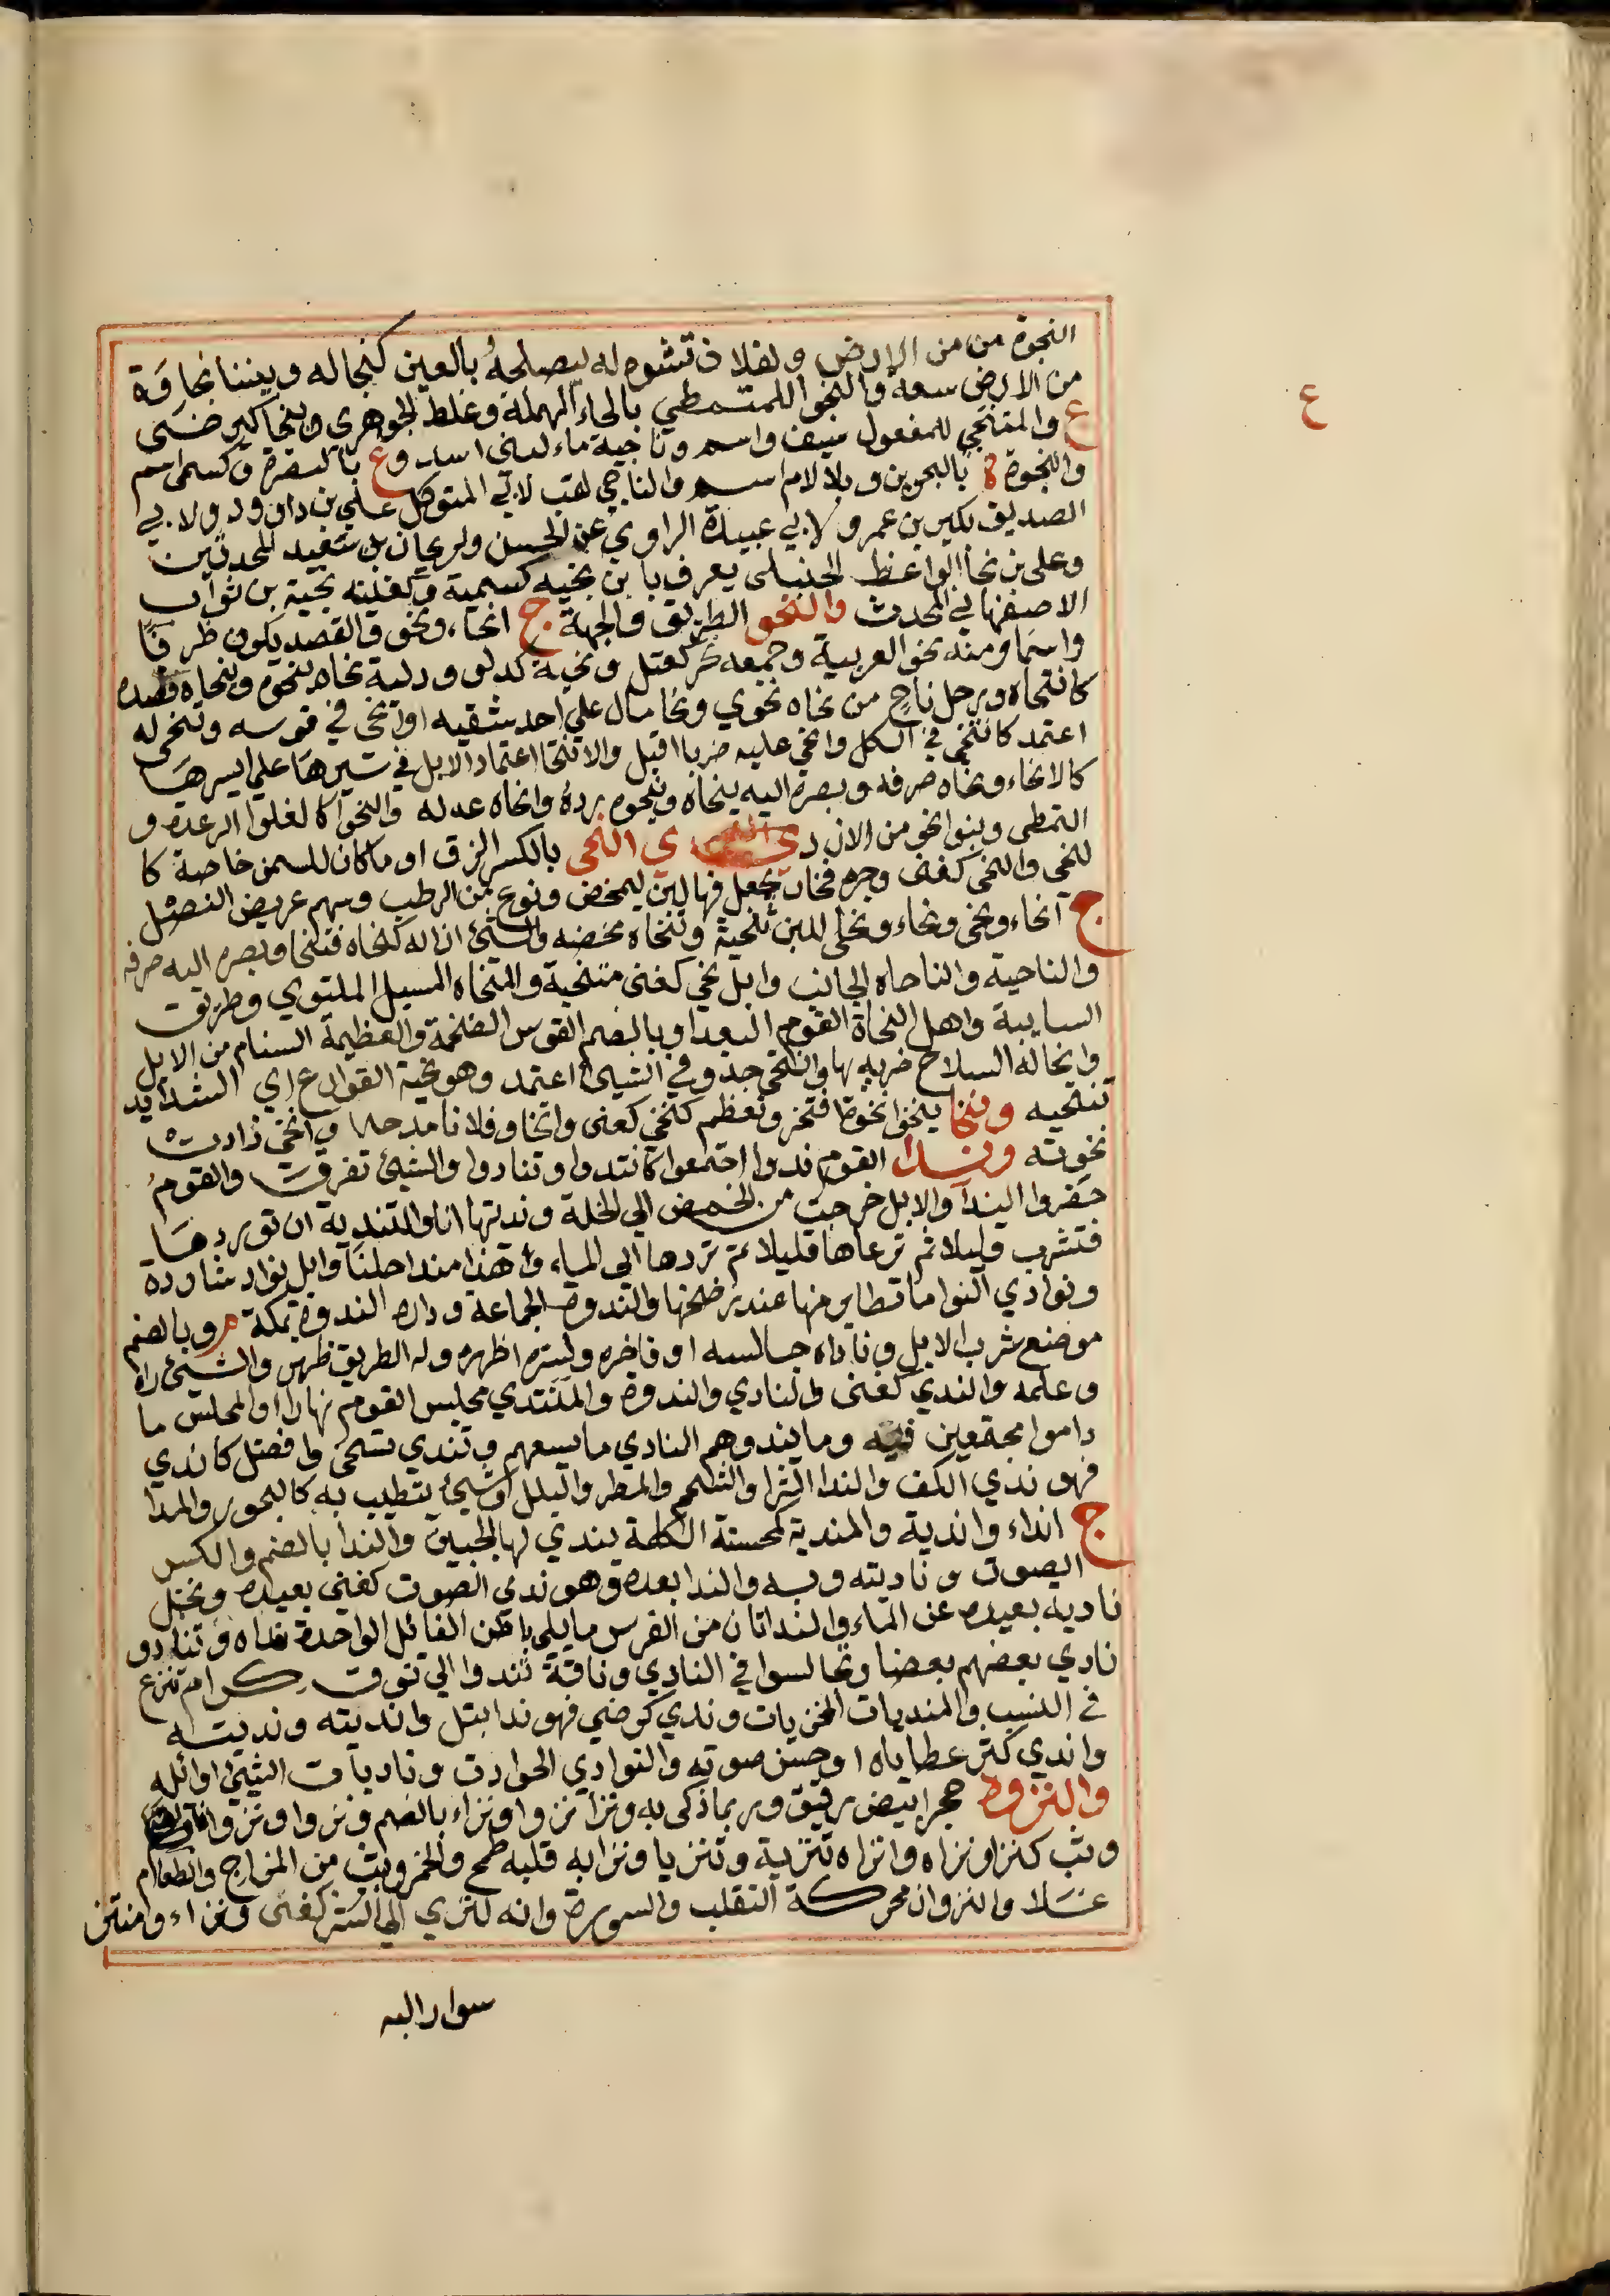 النجوة من من الارض ولفلان تشوه له ليصلحه بالعين كنجا له وبيننا نجاوة
من الارض سعة والنجوا للمتمطي بالحاء المهملة وغلط الجوهري وينجا كيرضى
ع والمتنجي للمفعول سيف واسم وناجية ماء لبني اسد وع بالبصرة وكسمى اسم
والنجوة ة بالبحرين وبلا لام اسم والناجي لقب لابي المتوكل علي بن داوود ولابي
الصديق بكير بن عمرو ولابي عبيدة الراوي عن الحسن ولريحان بن سعيد المحدثين
وعلي بن نجا الواعظ الحنبلي يعرف بابن نجيه كسمية وكغنيته نجية بن ثواب
الاصفهاني المحدث والنحو الطريق والجهة ج انحاء ونحو والقصد يكون ظرفا
واسما ومنه نحو العربية وجمعه نحو كعتل ونحية كدلو ودلية نحاه ينحوه وينحاه قصده
كانتحاه ورجل ناح من نحاه نحوي ونحا مال على احد شقيه او انحى في قوسه وتنحى له
اعتمد كانتحى في الكل وانحى عليه ضربا اقبل والانتحا اعتماد الابل في سيرها على ايسرها
كالانحاء ونحاه صرفه وبصره اليه ينحاه وينحوه رده وانحاه عدله والنحوا كالغلوا الرعدة و
التمطي وبنوا نحو من الازد ي النحى بالكسر الزق او ما كان للسمن خاصة كا
لنحى والنحى كفتى وجرة فخار يجعل فيها لبن ليمخض ونوع من الرطب وسهم عريض النصل
ج انحاء ونحى ونحاء ونحى اللبن ينحيه وينحاه مخضه والشئ ازاله كنحاه فتنحا وبصره اليه صرفه
والناحية والناحاه الجانب وابل نحي كغنى متنحية والمنحاه المسيل الملتوي وطريق
السانية واهل المنحاة القوم البعدا وبالضم القوس الضخمة والعظيمة السنام من الابل
وانحا له السلاح ضربه بها وانتحى جد وفي الشيئ اعتمد وهو نحية القوارع اي الشدايد
تنتحيه ونخا ينخوا نخوة افتخر وتعظم كنخي كعنى وانتخا وفلانا مدحه وانخى زادت
نخوته وندا القوم ندوا اجتمعوا كانتدوا وتنادوا والشيئ تفرق والقوم
حضروا الندا والابل خرجت من الحمض الى الخلة وندتها انا والتندية ان توردها
فتشرب قليلا ثم ترعاها قليلا ثم تردها الى الماء وهذا مندا خلنا وابل نواد شاردة
ونوادي النوا ما تطاير منها عند رضخها والندوة الجماعة ودار الندوة بمكة م وبالضم
موضع شرب الابل وناداه جالسه او فاخره وبسره اظهره وله الطريق ظهر والشيئ راه
وعلمه والندي كغنى والنادي والندوة والمنتدي مجلس القوم نهارا او المجلس ما
داموا مجتمعين فيه وما يندوهم النادي ما يسعهم وتندي تسخى وافضل كاندي
فهو ندي الكف والندا الثرا والشحم والمطر والبلل وشيئ يتطيب به كالبخور والمدا
ج انداء واندية والمندية كمحسنة الكلمة يندي لها الجبين والندا بالضم والكسر
الصوت وناديته وبه والندا بعده وهو ندي الصوت كغنى بعيده ونخل
نادية بعيدة عن الماء والنداتان من الفرس ما يلي باطن الفائل الواحدة نداه وتنادو
نادي بعضهم بعضا وتجالسوا في النادي وناقة تندوا الى نوق كرام تنزع
في النسب والمنديات المخزيات وندي كرضي فهو ندا ابتل وانديته ونديته
واندي كثر عطاياه او حسن صوته والنوادي الحوادث وناديات الشيئ اوائله
والنزوة حجر ابيض رقيق وربما ذكى به ونزا نزوا ونزاء بالضم ونزوا ونزوانا
وثب كنزا ونزاه وانزاه تنزية وتنزيا ونزا به قلبه طمح والخمر وثبت من المزاج والطعام
غلا والنزوان محركة التقلب والسورة وانه لنزي الى الشر كغنى ونزاء ومنتز
سوار اليه
ع